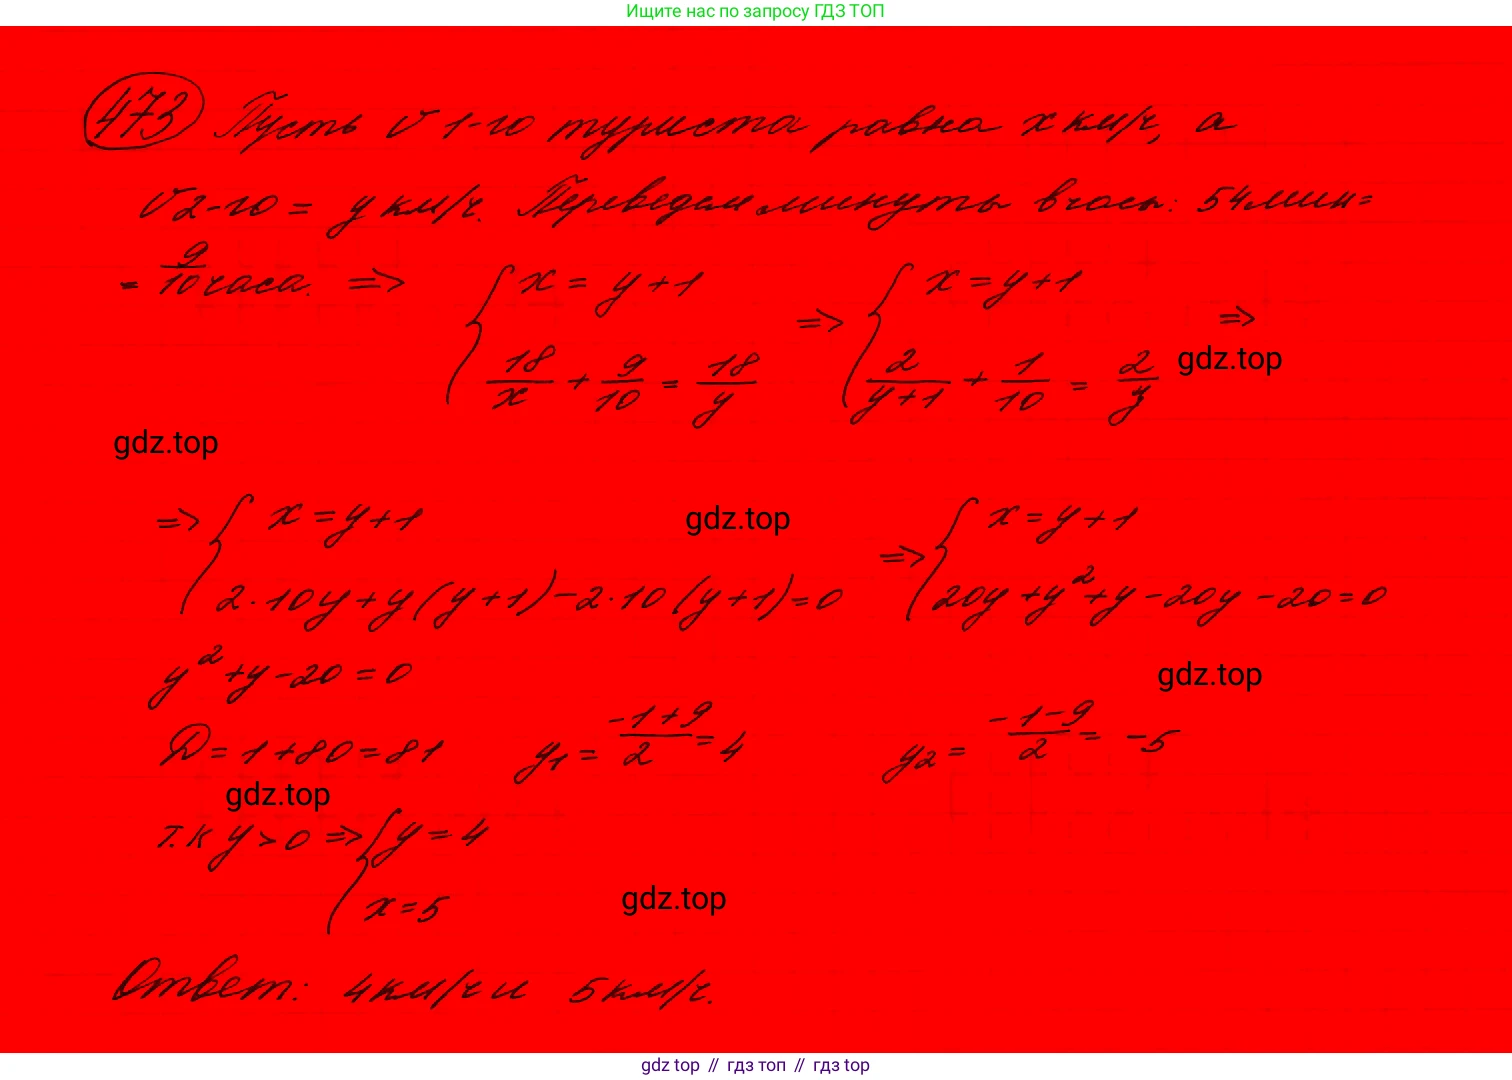 Ищите нас по запросу ГДЗ ТОП
473 Пусть v 1-го туриста равна x км/ч, а
v 2-го = y км/ч. Переведем минуты в часы: 54 мин =
= 9/10 часа. => { x = y+1 => { x = y+1 =>
18/x + 9/10 = 18/y 2/(y+1) + 1/10 = 2/y
gdz.top
gdz.top
=> { x = y+1 gdz.top => { x = y+1
2·10y+y(y+1)-2·10(y+1)=0 20y+y²+y-20y-20=0
y²+y-20=0
gdz.top
D=1+80=81 y₁ = (-1+9)/2 = 4 y₂ = (-1-9)/2 = -5
gdz.top
т.к y>0 => { y=4
x=5
gdz.top
Ответ: 4 км/ч и 5 км/ч.
gdz top // гдз топ // гдз top